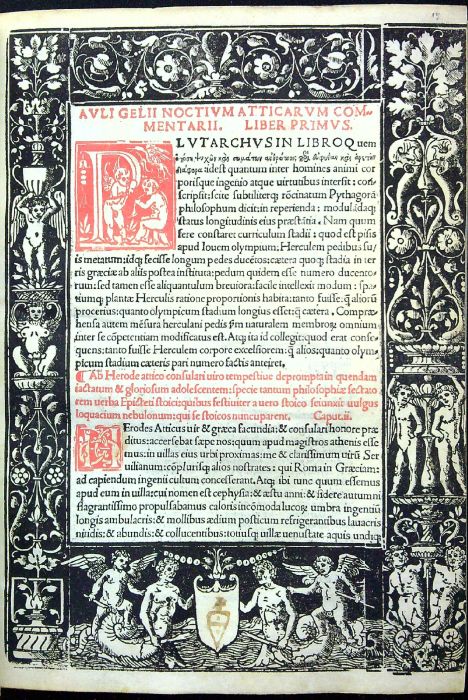 AVLI GELII NOCTIVM ATTICARVM COM-
MENTARII. LIBER PRIMVS.
PLVTARCHVS IN LIBRO Quem
adest quantum inter homines animi cor
porisque ingenio atque uirtutibus intersit: con
scripsit: scite subtiliterque rōcinatum Pythagorā
philosophum dicit: in reperienda: modulādaque
status longitudinis eius præstātia. Nam quum
fere constaret curriculum stadii: quod est pisis
apud Iouem olympium: Herculem pedibus su/
is metatum: idque fecisse longum pedes ducētos: cætera quoque stadia in ter
ris græciæ ab aliis postea instituta: pedum quidem esse numero ducento
rum: sed tamen esse aliquantulum breuiora: facile intellexit modum: spa
tiumque plantæ Herculis ratione proportionis habita: tanto fuisse: q̄ alioru
procerius: quanto olympicum stadium longius esset: q̄ cætera. Compræ
hensa autem mēsura herculani pedis ꝑm naturalem membrorum omnium
inter se cōpetentiam modificatus est. Atque ita id collegit: quod erat conse
quens: tanto fuisse Herculem corpore excelsiorem: q̄ alios: quanto olym
picum stadium cæteris pari numero factis anteiret.
¶ AB Herode attico consulari uiro tempestiue deprompta in quendam
iactatum & gloriosum adolescentem: specie tantum philosophiæ sectato
rem uerba Epicteti stoici: quibus festiuiter a uero stoico seiunxit uulgus
loquacium nebulonum: qui se stoicos nuncuparent. Caput.ii.
HErodes Atticus uir & græca facundia: & consulari honore præ
ditus: accersebat sæpe nos: quum apud magistros athenis esse
mus: in uillas eius urbi proximas: me & clarissimum uirū Ser
uilianum: cōplurisque alios nostrates: qui Roma in Græciam:
ad capiendum ingenii cultum concesserant. Atque ibi tunc quum essemus
apud eum in uilla: cui nomen est cephysia: & æstu anni: & sidere autumni
flagrantissimo propulsabamus caloris incōmoda lucorum umbra ingentiū
longis ambulacris: & mollibus ædium posticum refrigerantibus lauacris
nitidis: & abundis: & collucentibus: totiusque uillæ uenustate aquis undique